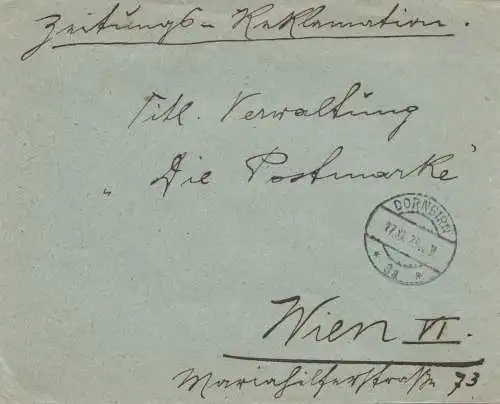 Zeitungs-Reklamation.
Titl. Verwaltung
„Die Postmarke"
DORNBIRN
* 3a *
Wien VI.
Mariahilferstraße 73